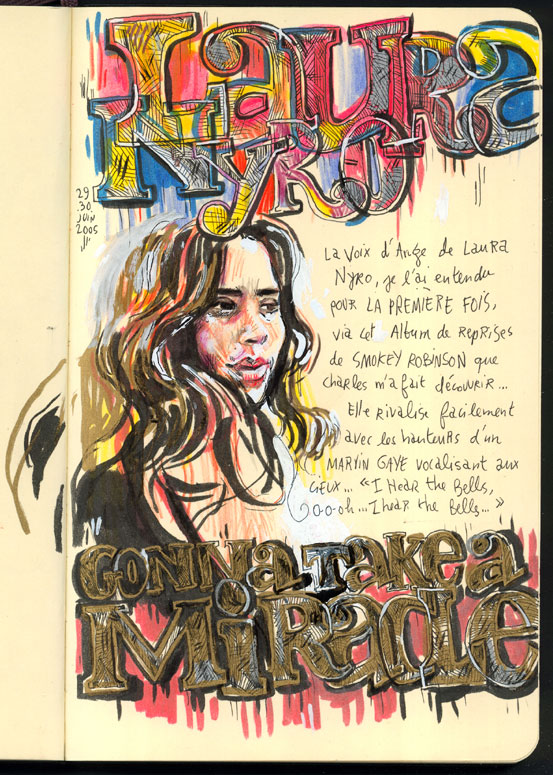 LaURa
NyRO
29
30
JUIN
2005
La Voix d'Ange de LauRa
Nyro, je l'ai entendu
POUR LA PREMIERE FOIS,
via cet Album de Reprises
de SMOKEY ROBINSON que
charles m'a fait découvrir...
Elle rivalise facilement
avec les hauteurs d'un
MARVIN GAYE vocalisant aux
CIEUX... « I Hear the Bells,
O-o-oh... I hear the Bells... »
GONNa TaKe a
MiRacle